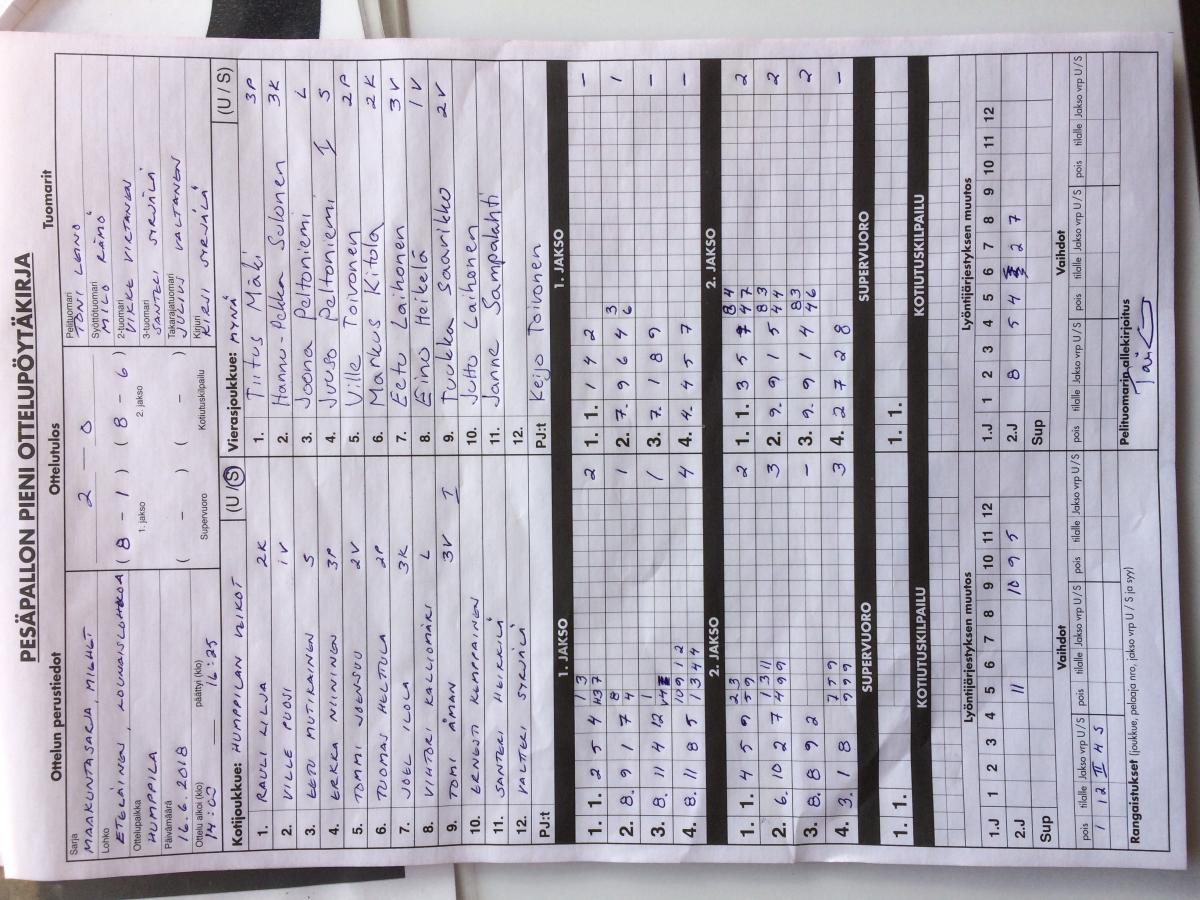 PESÄPALLON PIENI OTTELUPÖYTÄKIRJA
Ottelun perustiedot
Ottelutulos
Tuomarit
Sarja
MAAKUNTASARJA, MIEHET
Lohko
ETELÄINEN, LOUNAISLOHKO A
Ottelupaikka
HUMPPILA
Päivämäärä
16.6.2018
Ottelu alkoi (klo)
14:00
päättyi (klo)
16:25
2 — 0
(8 - 1) (8 - 6)
1. jakso 2. jakso
( - ) ( - )
Supervuoro Kotiutuskilpailu
Pelituomari
TONI LEINO
Syöttötuomari
MILO RÄMÖ
2-tuomari
VIKKE VIRTANEN
3-tuomari
SANTERI SYRJÄLÄ
Takarajatuomari
JULIUS VALTANEN
Kirjuri
KIRSI SYRJÄLÄ
Kotijoukkue: HUMPPILAN VEIKOT (U / S)
1. RAULI LILJA 2K
2. VILLE PUSI 1V
3. EETU MUTIKAINEN S
4. ERKKA NIININEN 3P
5. TOMMI JOENSUU 2V
6. TUOMAS HELTULA 2P
7. JOEL ILOLA 3K
8. VIHTORI KALLIOMÄKI L
9. TOMI ÅMAN 3V I
10. ERNESTI KEMPPAINEN
11. SANTERI HEIKKILÄ
12. VALTTERI SYRJÄLÄ
PJ:t
Vierasjoukkue: MYNÄ (U / S)
1. Tiitus Mäki 3P
2. Hannu-Pekka Sulonen 3K
3. Joona Peltoniemi L
4. Juuso Peltoniemi I S
5. Ville Toivonen 2P
6. Markus Kitola 2K
7. Eetu Laihonen 3V
8. Eino Heikelä 1V
9. Tuukka Saarikko 2V
10. Juho Laihonen
11. Janne Sampalahti
12.
PJ:t Keijo Toivonen
1. JAKSO
1. 1. 2 5 4 13 437 2
2. 8. 9 1 7 8 4 1
3. 8. 11 4 12 1
4. 8. 11 8 5 10 9 1 2 1 3 4 4 4
2. JAKSO
1. 1. 4 5 9 23 59 2
2. 6. 10 2 7 1 3 11 4 9 9 3
3. 8. 8 9 2 –
4. 3. 1 8 7 7 9 9 9 9 3
SUPERVUORO
1. 1.
KOTIUTUSKILPAILU
1. JAKSO
1. 1. 1 4 2 –
2. 7. 9 6 4 3 6 1
3. 7. 1 8 9 –
4. 4. 4 5 7 –
2. JAKSO
1. 1. 3 5 7 84 47 2
2. 9. 9 1 5 83 44 2
3. 9. 9 1 4 83 46 2
4. 2 7 2 8 –
SUPERVUORO
1. 1.
KOTIUTUSKILPAILU
Lyöntijärjestyksen muutos
1.J 1 2 3 4 5 6 7 8 9 10 11 12
2.J 11 10 9 5
Sup
Vaihdot
pois tilalle Jakso vrp U / S pois tilalle Jakso vrp U / S pois tilalle Jakso vrp U / S
1 12 II 4 S
Lyöntijärjestyksen muutos
1.J 1 2 3 4 5 6 7 8 9 10 11 12
2.J 8 5 4 2 7
Sup
Vaihdot
pois tilalle Jakso vrp U / S pois tilalle Jakso vrp U / S pois tilalle Jakso vrp U / S
Rangaistukset (joukkue, pelaaja nro, jakso vrp U / S ja syy)
Pelituomarin allekirjoitus